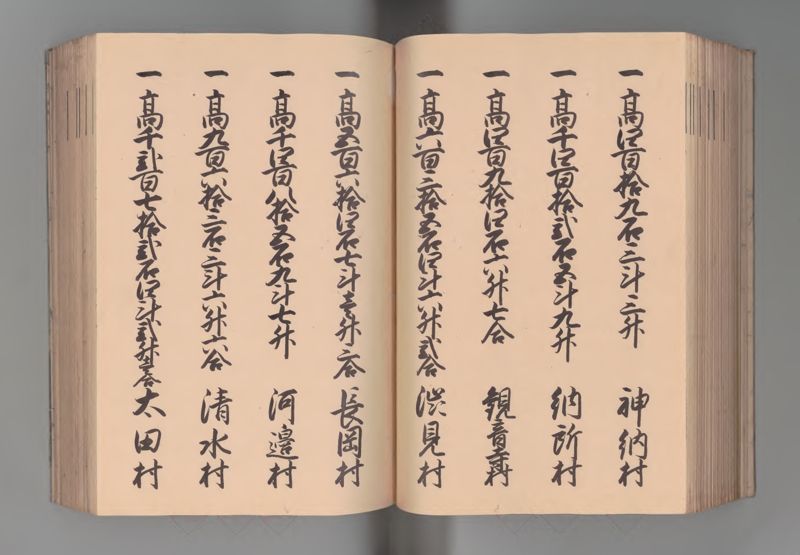 一 高四百拾九石三斗三升 神納村
一 高千四百拾弐石五斗九升 納所村
一 高四百九拾四石六升七合 観音寺村
一 高六百三拾五石四斗六升弐合 渋見村
一 高五百六拾四石七斗壱升三合 長岡村
一 高千四百八拾五石九斗七升 河邊村
一 高九百六拾三石三斗六升六合 清水村
一 高千弐百七拾弐石四斗弐升壱合 太田村